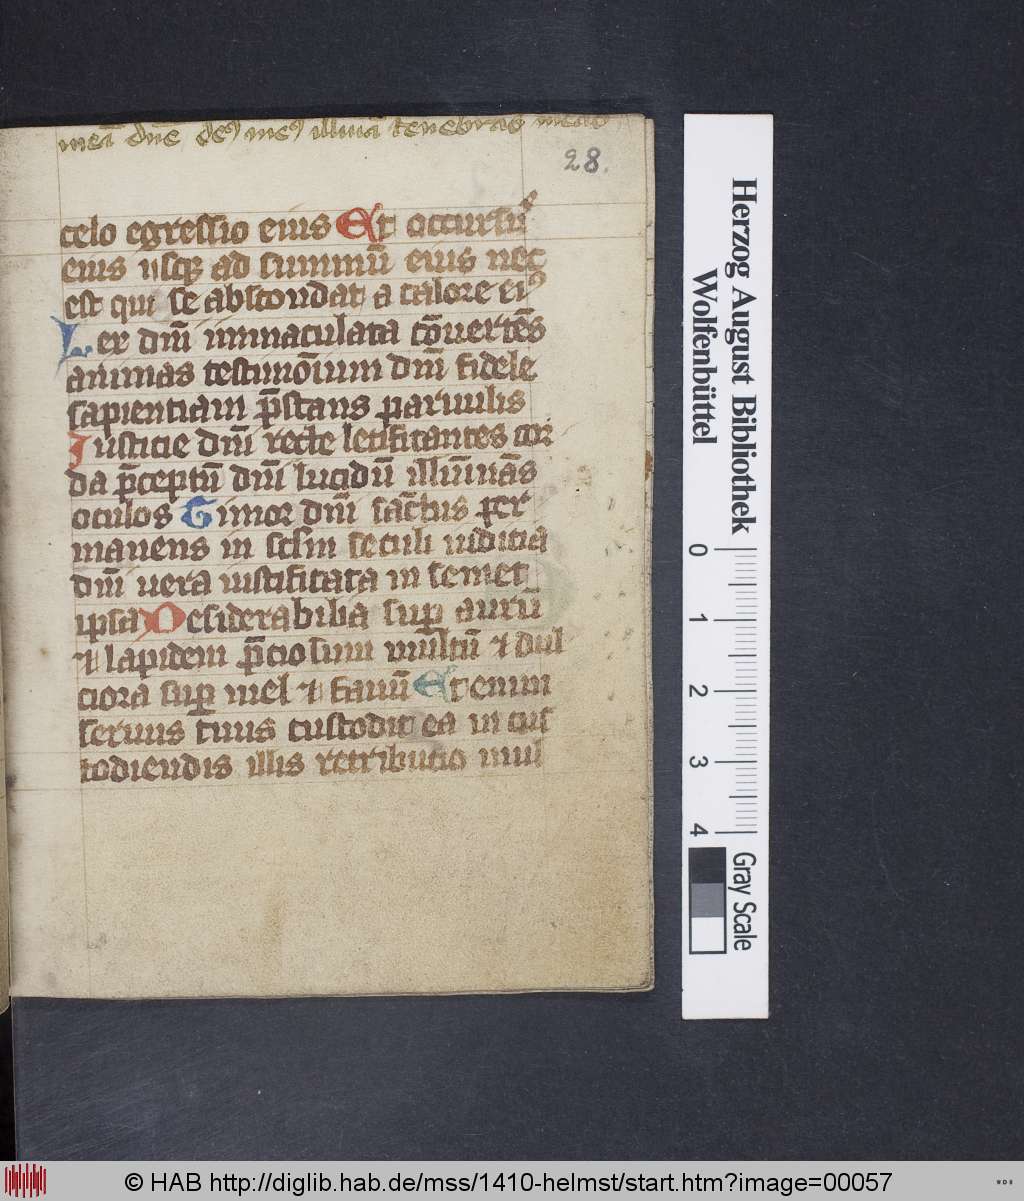 meā dn̄e de⁹ me⁹ illumīa tenebras meas
28.
celo egressio eius Et occursū
eius usq; ad summū eius nec
est qui se abscondat a calore ei⁹
Lex dm̄i immaculata cōuertēs
animas testimōium dm̄i fidele
sapientiam p̄stans paruulis
Justicie dm̄i recte letificantes cor
da p̄ceptū dm̄i lucidū illūinās
oculos Timor dm̄i sāctus per
manens in sclm̄ seculi iudicia
dm̄i uera iustificata in semet
ipsa Desiderabilia sup aurū
⁊ lapidem p̄ciosum multū ⁊ dul
ciora sup mel ⁊ fauū Et enim
seruus tuus custodit ea in cus
todiendis illis retributio mul
Herzog August Bibliothek
Wolfenbüttel
0 1 2 3 4
Gray Scale
© HAB http://diglib.hab.de/mss/1410-helmst/start.htm?image=00057